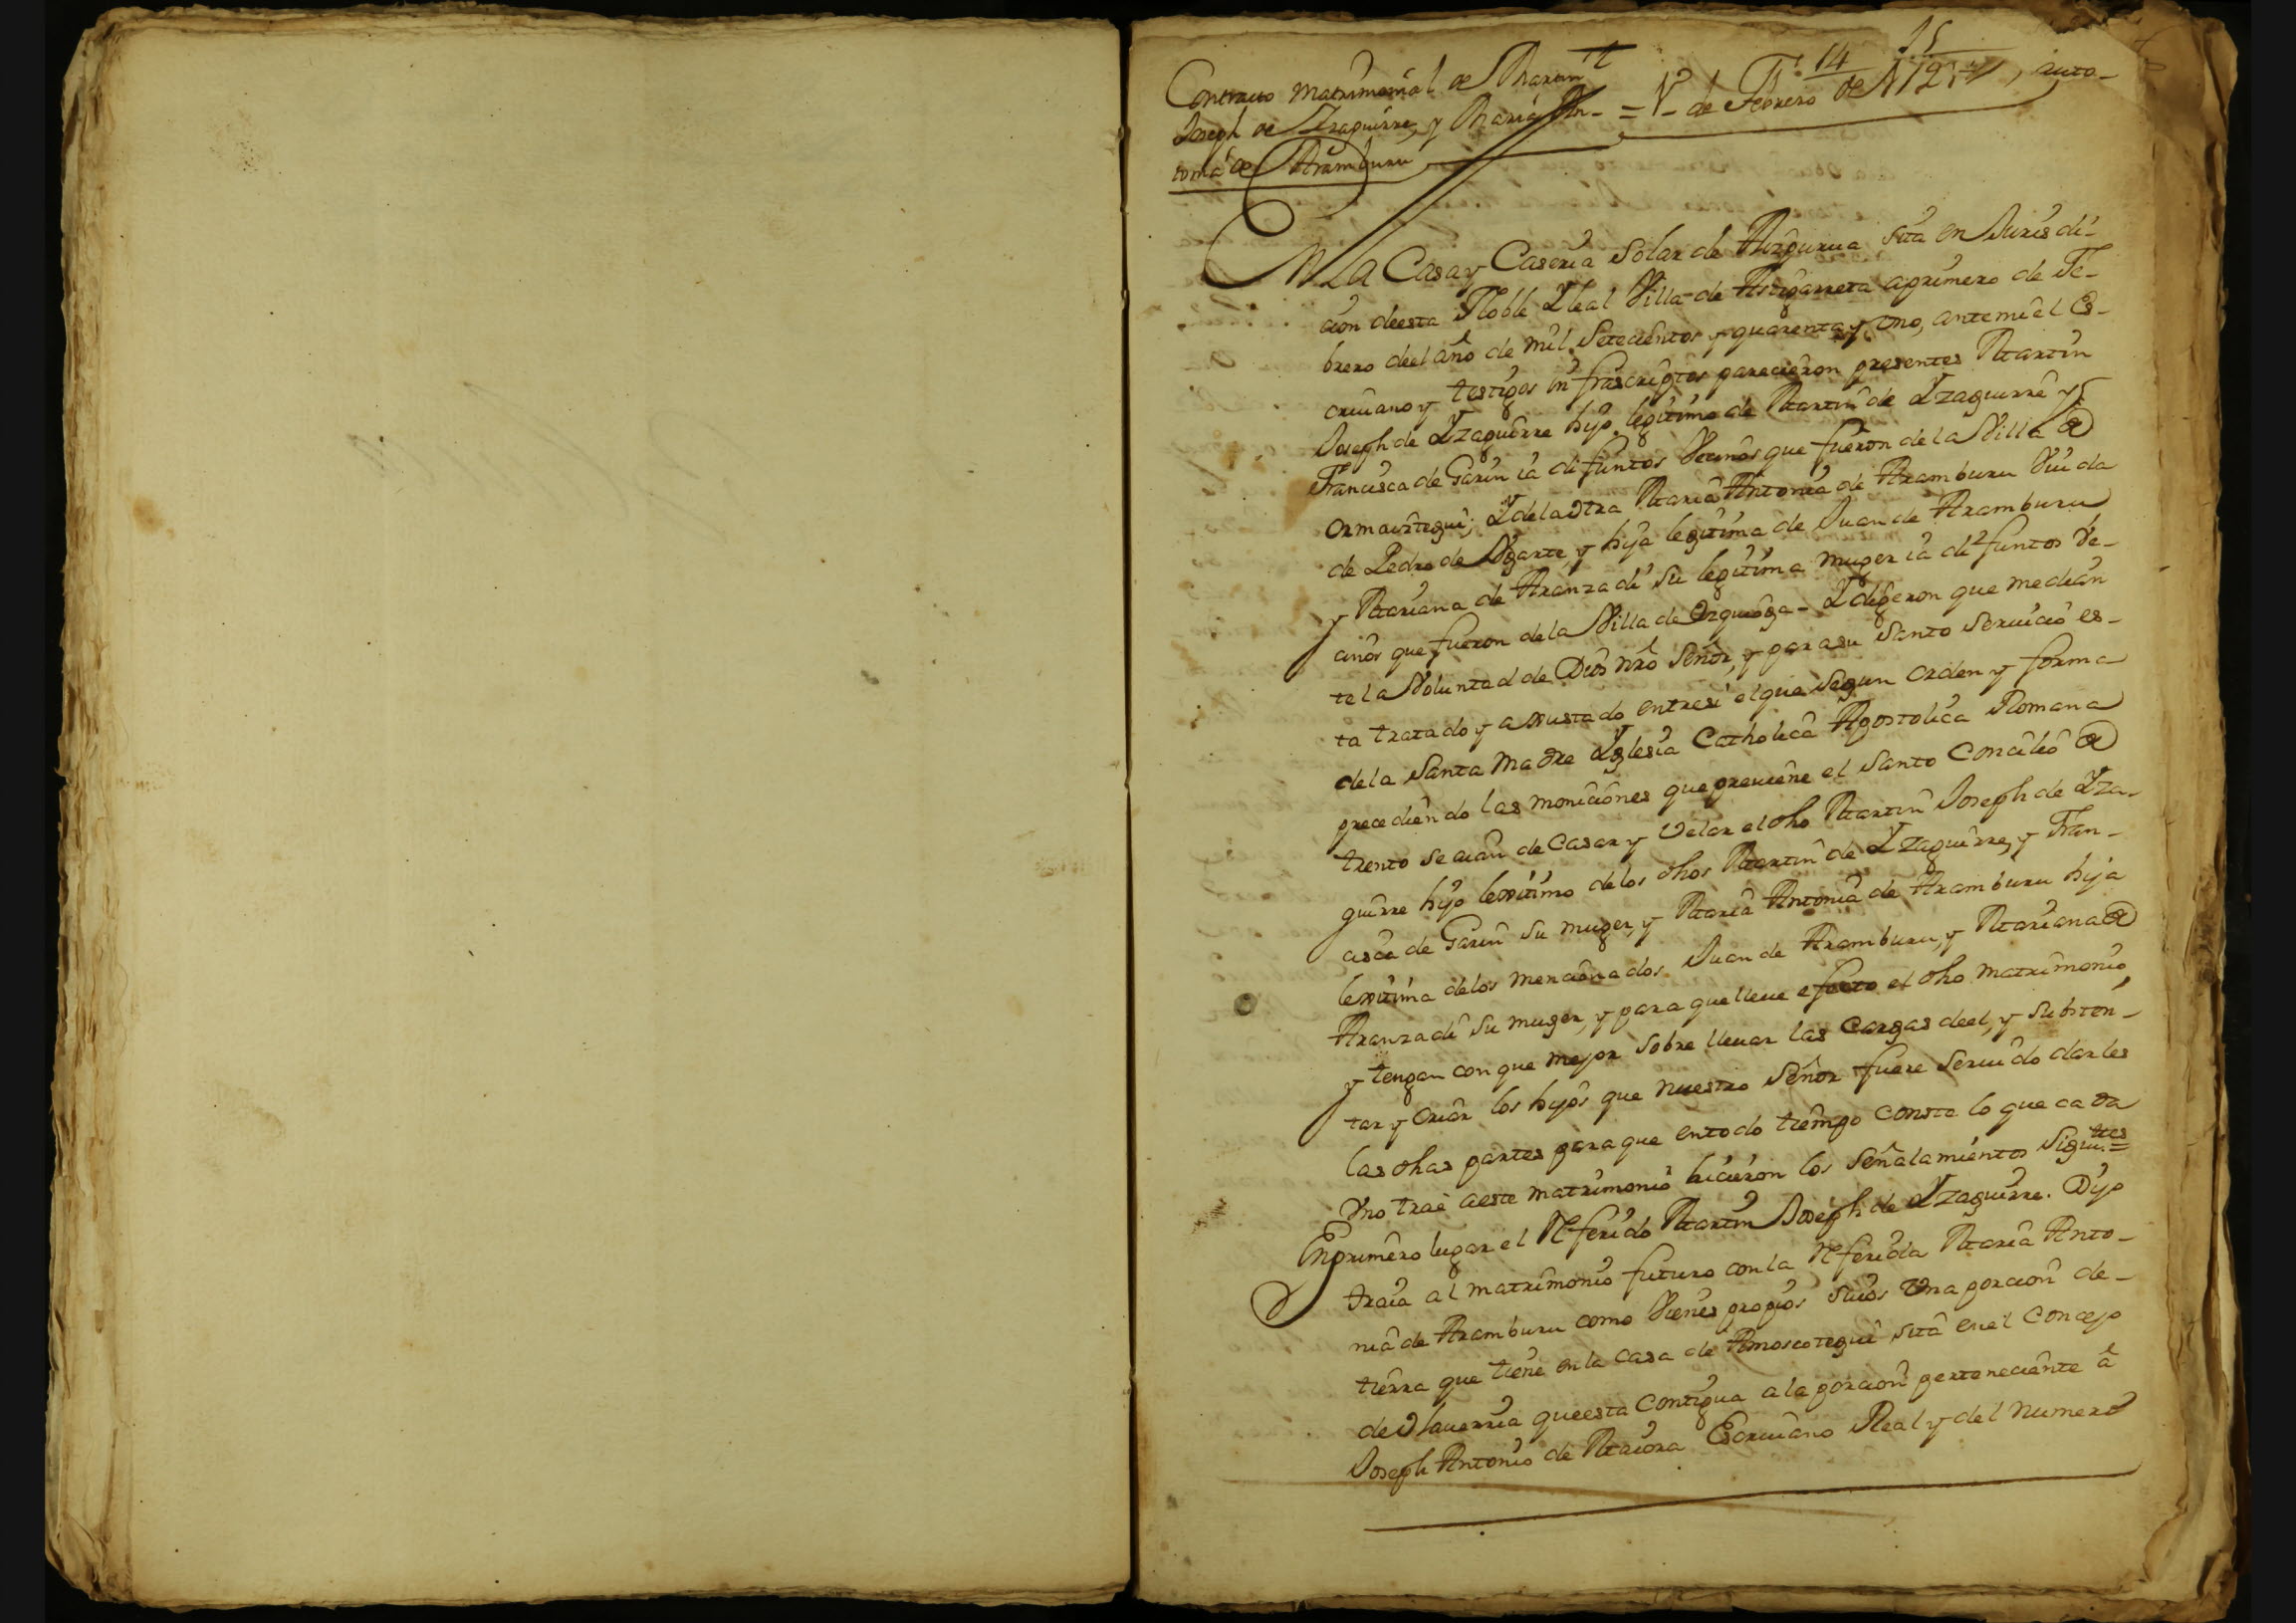 Contracto Matrimonial de Martin
Joseph de Yzaguirre, y Maria An-
tonia de Aramburu
14
15
de Febrero de
En La Casa y Caseria Solar de Aizpurua sita en Jurisdi-
cion deesta Noble Y leal Villa de Astigarreta aprimero de Fe-
brero deel año de mil Setecientos y quarenta y Uno, ante mi el Es-
criuano y testigos infrascriptos parecieron presentes Martin
Joseph de Yzaguirre hijo legitimo de Martin de Yzaguirre y
Francisca de Garin ia difuntos Vecinos que fueron de la Villa de
Ormaiztegui; Y dela otra Maria Antonia de Aramburu Viuda
de Pedro de Ugarte, y hija legitima de Juan de Aramburu
y Mariana de Aranzadi su legitima muger ia difuntos Ve-
cinos que fueron dela Villa de Ezquioga - Y digeron que median
te la Voluntad de Dios nro Señor, y para su Santo Seruicio es-
ta tratado y axustado entresi el que segun orden y forma
dela Santa Madre Yglesia Catholica Apostolica Romana
precediendo las moniciones que preuiene el Santo Concilio de
trento se aian de Casar y Velar el dho Martin Joseph de Yza-
guirre hijo lexitimo delos dhos Martin de Yzaguirre, y Fran-
cisca de Garin su muger, y Maria Antonia de Aramburu hija
lexitima delos mencionados Juan de Aramburu, y Mariana de
Aranzadi su muger, y para que lleue efecto el dho matrimonio,
y tengan con que mejor sobre lleuar las Cargas deel, y susten-
tar y Criar los hijos que nuestro Señor fuere seruido darles
las dhas partes para que entodo tiempo conste lo que cada
Uno trae aeste matrimonio hicieron los señalamientos siguientes =
Enprimero lugar el Referido Martin Joseph de Yzaguirre. Dijo
traia al matrimonio futuro con la Referida Maria Anto-
nia de Aramburu como Vienes propios suios Una porcion de-
tierra que tiene en la casa de Amoscotegui sita en el Concejo
de Olauerria queesta Contigua a la porcion perteneciente â
Joseph Antonio de Escriuano Real y del Numero